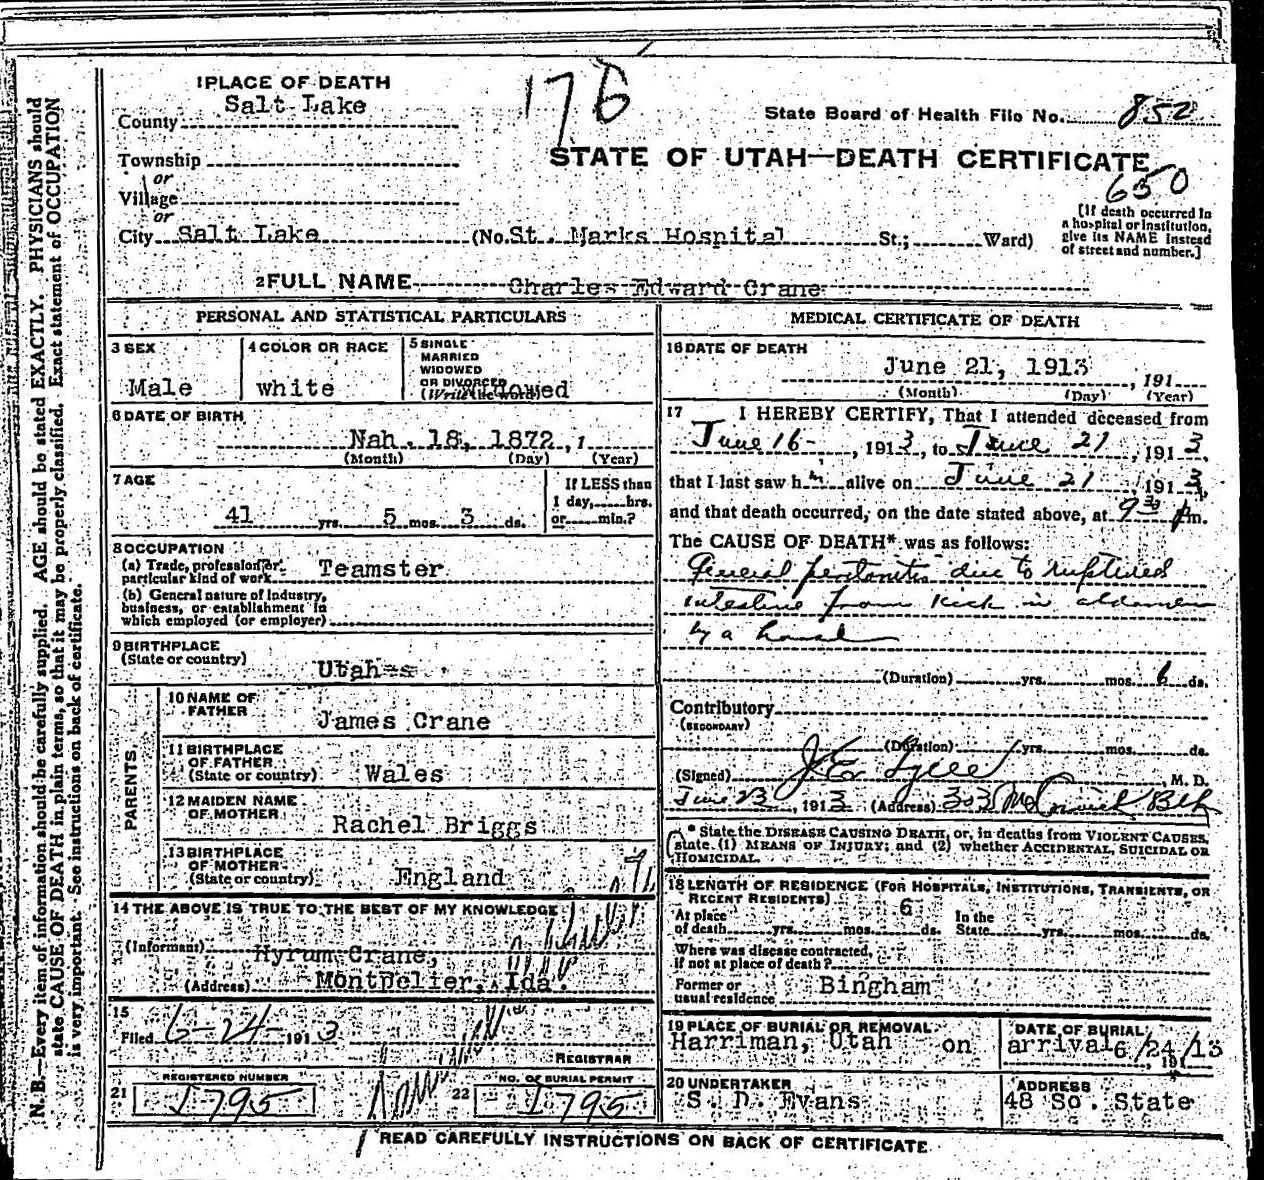 1 PLACE OF DEATH
County Salt Lake
Township
or
Village
or
City Salt Lake (No. St. Marks Hospital St.; Ward)
176
State Board of Health File No. 852
STATE OF UTAH—DEATH CERTIFICATE
650
[If death occurred in
a hospital or institution,
give its NAME instead
of street and number.]
2 FULL NAME Charles Edward Crane
PERSONAL AND STATISTICAL PARTICULARS
3 SEX
Male
4 COLOR OR RACE
white
5 SINGLE
MARRIED
WIDOWED
OR DIVORCED
(Write the word)
widowed
6 DATE OF BIRTH
Nah. 18, 1872, 1
(Month) (Day) (Year)
7 AGE
41 yrs. 5 mos. 3 ds.
If LESS than
1 day, hrs.
or min.?
8 OCCUPATION
(a) Trade, profession, or
particular kind of work Teamster
(b) General nature of industry,
business, or establishment in
which employed (or employer)
9 BIRTHPLACE
(State or country)
Utah
PARENTS
10 NAME OF
FATHER
James Crane
11 BIRTHPLACE
OF FATHER
(State or country) Wales
12 MAIDEN NAME
OF MOTHER
Rachel Briggs
13 BIRTHPLACE
OF MOTHER
(State or country) England
14 THE ABOVE IS TRUE TO THE BEST OF MY KNOWLEDGE
(Informant) Hyrum Crane,
(Address) Montpelier, Ida.
15
Filed 6-24-1913
REGISTRAR
21 REGISTERED NUMBER
1795
22 NO. OF BURIAL PERMIT
1795
MEDICAL CERTIFICATE OF DEATH
16 DATE OF DEATH
June 21, 1913, 191
(Month) (Day) (Year)
17 I HEREBY CERTIFY, That I attended deceased from
June 16-, 1913, to June 21, 1913,
that I last saw him alive on June 21, 1913,
and that death occurred, on the date stated above, at 9 30 pm.
The CAUSE OF DEATH* was as follows:
General peritonitis due to ruptured
intestine from kick in abdomen
by a horse
(Duration) yrs. mos. 6 ds.
Contributory
(SECONDARY)
(Duration) yrs. mos. ds.
(Signed) J E , M. D.
June 23, 1913 (Address) 303 McCornick Blk
* State the DISEASE CAUSING DEATH, or, in deaths from VIOLENT CAUSES,
state (1) MEANS OF INJURY; and (2) whether ACCIDENTAL, SUICIDAL OR
HOMICIDAL.
18 LENGTH OF RESIDENCE (FOR HOSPITALS, INSTITUTIONS, TRANSIENTS, OR
RECENT RESIDENTS)
At place
of death yrs. mos. 6 ds.
In the
State yrs. mos. ds.
Where was disease contracted,
if not at place of death?
Former or
usual residence Bingham
19 PLACE OF BURIAL OR REMOVAL
Harriman, Utah on
DATE OF BURIAL
arrival 6/24/13
191
20 UNDERTAKER
S. D. Evans
ADDRESS
48 So. State
READ CAREFULLY INSTRUCTIONS ON BACK OF CERTIFICATE
N. B.—Every item of information should be carefully supplied. AGE should be stated EXACTLY. PHYSICIANS should
state CAUSE OF DEATH in plain terms, so that it may be properly classified. Exact statement of OCCUPATION
is very important. See instructions on back of certificate.